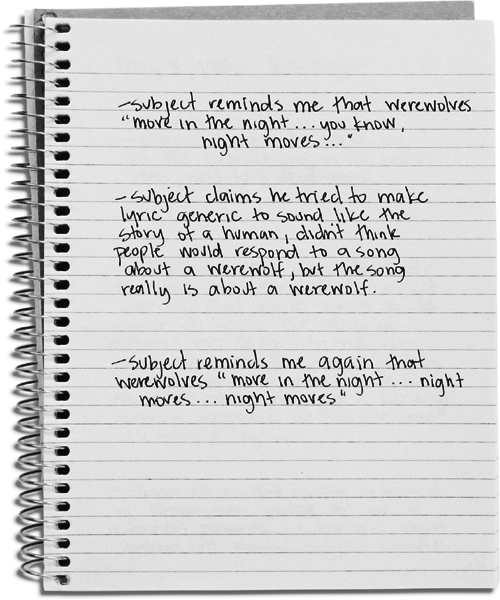 -subject reminds me that werewolves
"move in the night...you know,
night moves..."
-subject claims he tried to make
lyric generic to sound like the
story of a human, didn't think
people would respond to a song
about a werewolf, but the song
really is about a werewolf.
-subject reminds me again that
werewolves "move in the night...night
moves...night moves"